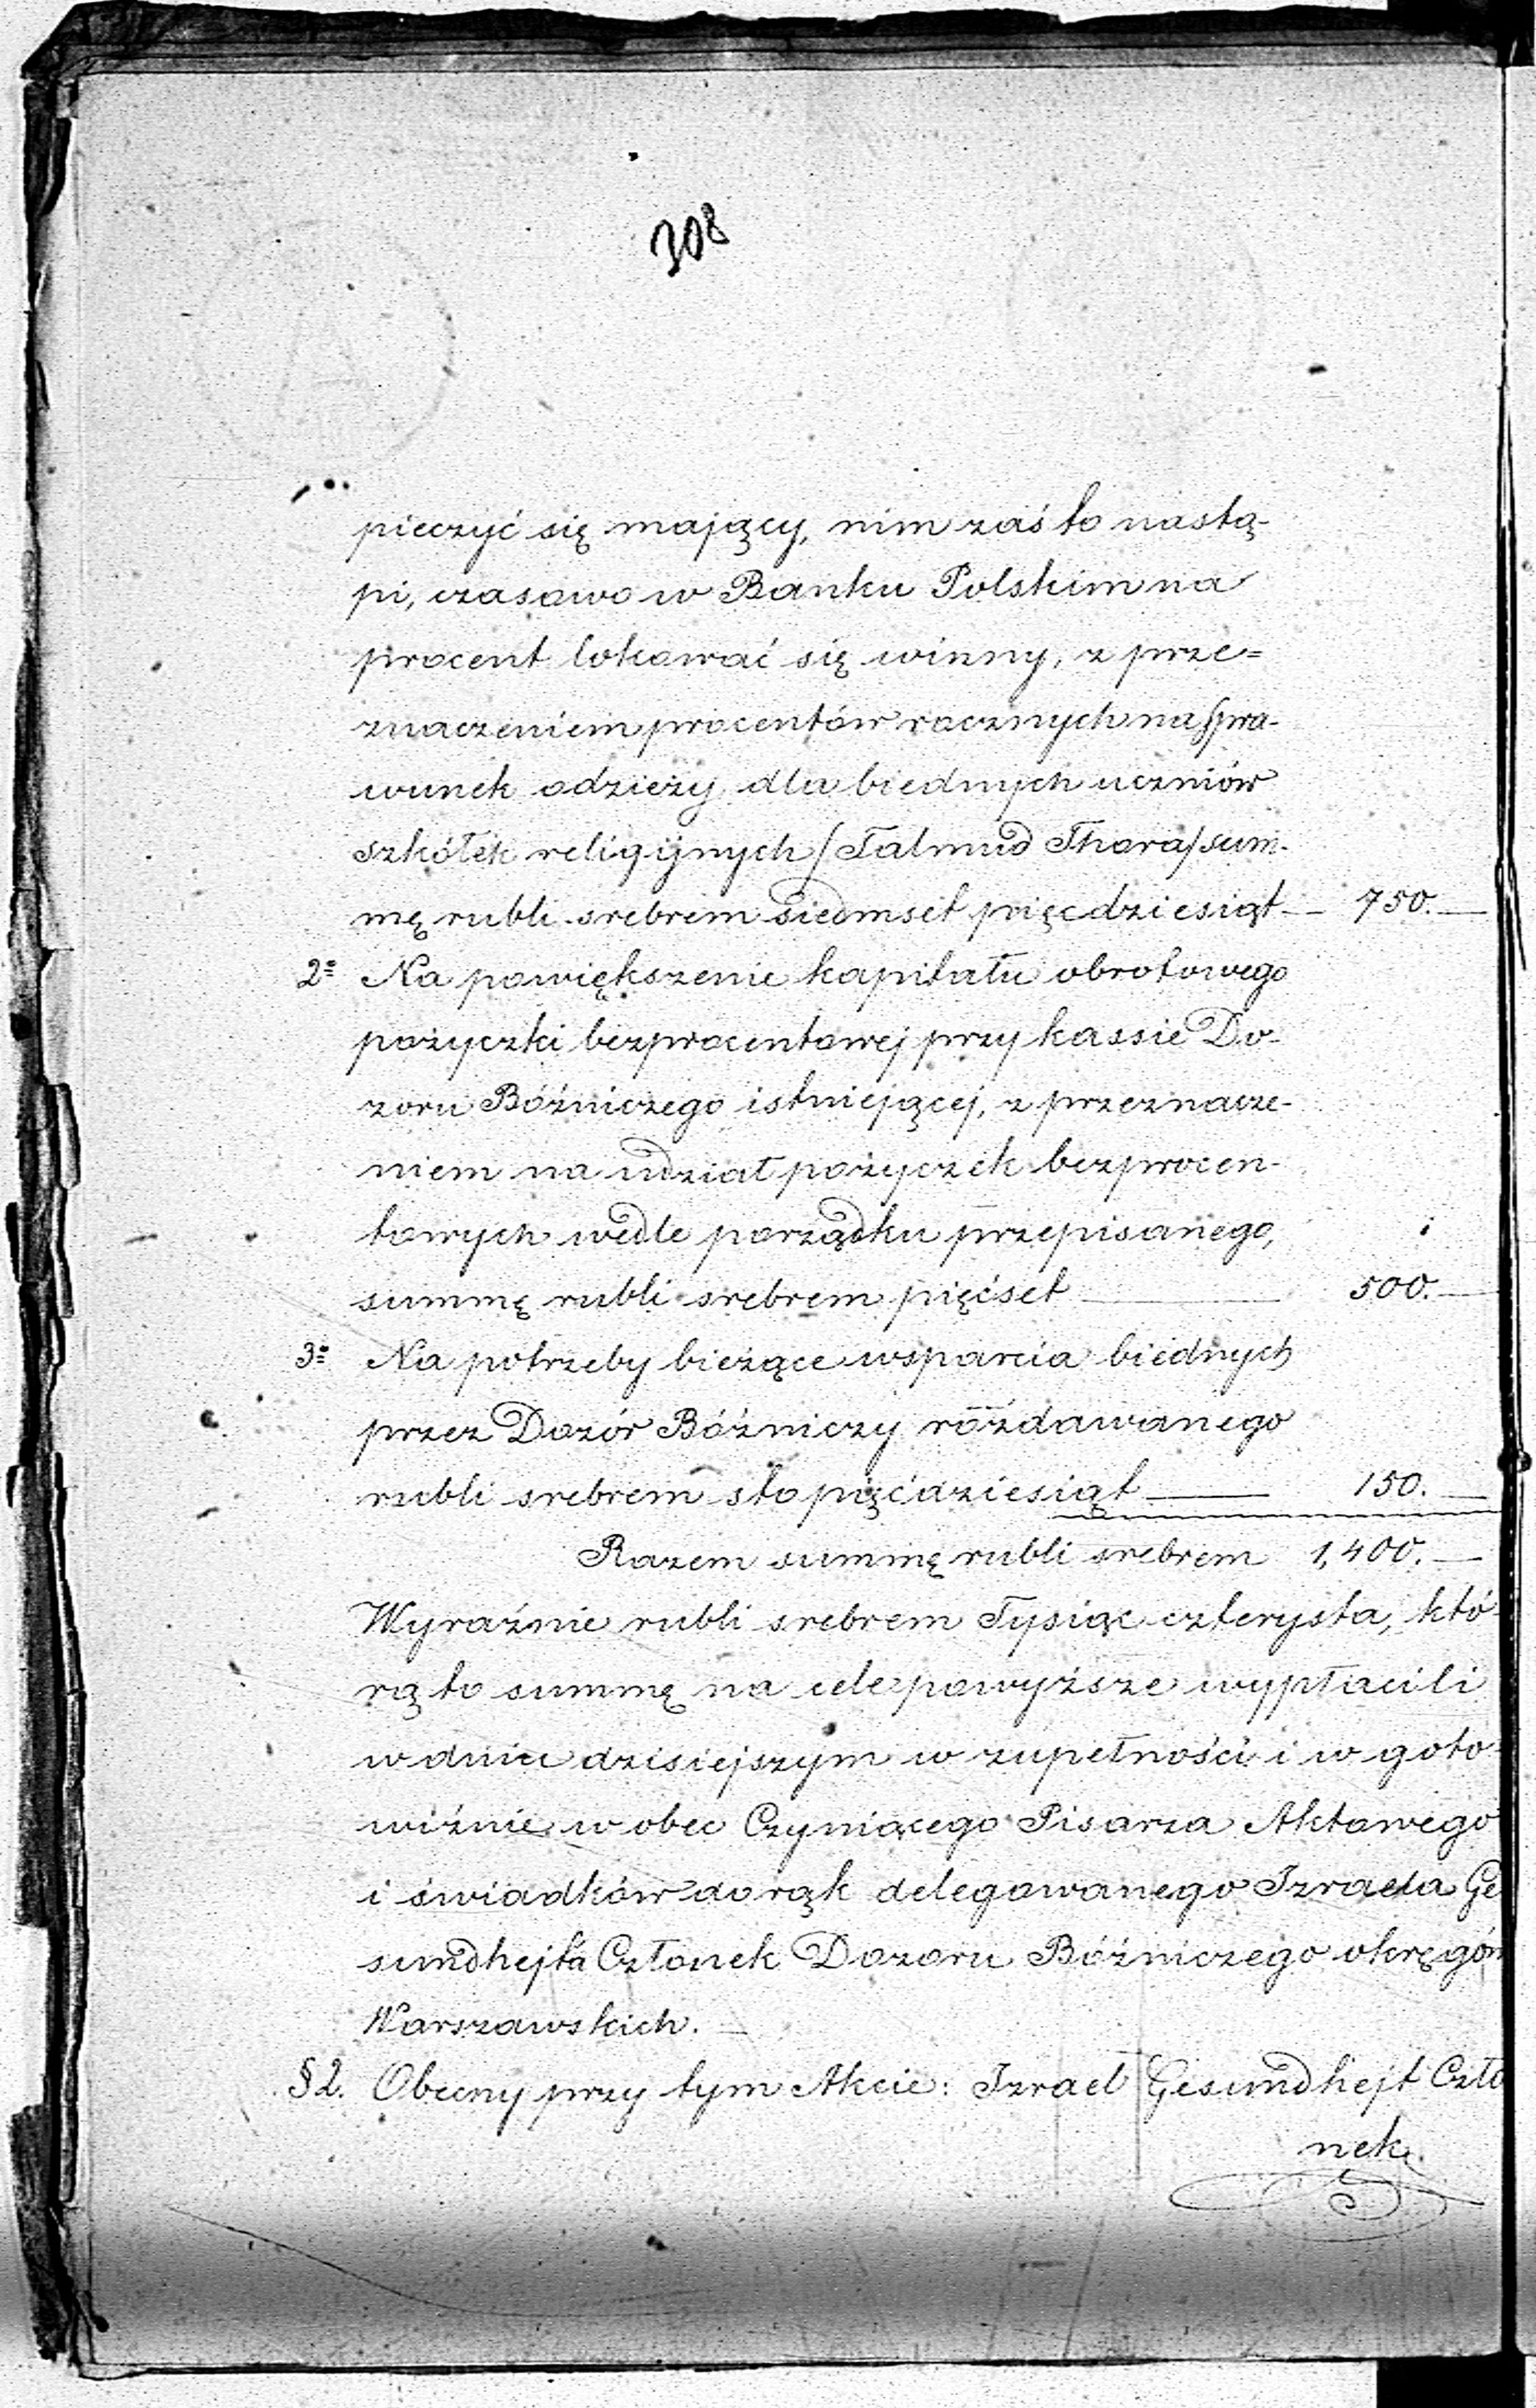 308
pieczyć się mający, nim zaś to nastą-
pi, czasowo w Banku Polskim na
procent lokować się winny, z prze=
znaczeniem procentów rocznych na spra-
wunek odzieży dla biednych uczniów
szkółek religijnych / Talmud Thora / sum-
mę rubli srebrem siedmset pięcdziesiąt — 750. —
2° Na powiększenie kapitału obrotowego
pożyczki bezprocentowej przy kassie Do-
zoru Bóżniczego istniejącej, z przeznacze-
niem na udział pożyczek bezprocen-
towych wedle porządku przepisanego,
summę rubli srebrem pięćset — 500. —
3° Na potrzeby bieżące wsparcia biednych
przez Dozór Bóżniczy rozdawanego
rubli srebrem sto pięćdziesiąt — 150. —
Razem summę rubli srebrem 1,400. —
Wyraźnie rubli srebrem Tysiąc czterysta, któ-
rą to summę na cele powyższe wypłacili
w dniu dzisiejszym w zupełności i w goto-
wiźnie w obec Czyniącego Pisarza Aktowego
i świadków do rąk delegowanego Izraela Ge
sundhejta Członek Dozoru Bóżniczego okręgów
Warszawskich. —
§ 2. Obecny przy tym Akcie: Izrael Gesundhejt Czło
nek